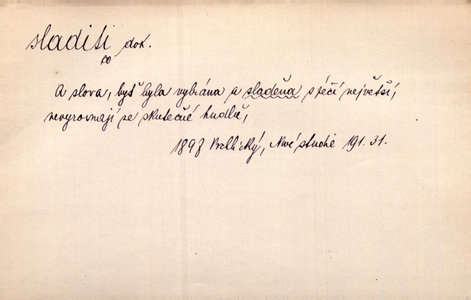 sladiti dok.
co
A slova, byť byla vybrána a sladěna s péčí největší,
nevyrovnají se skutečné hudbě,
1897 Vrchlický, Nové studie 191.31.